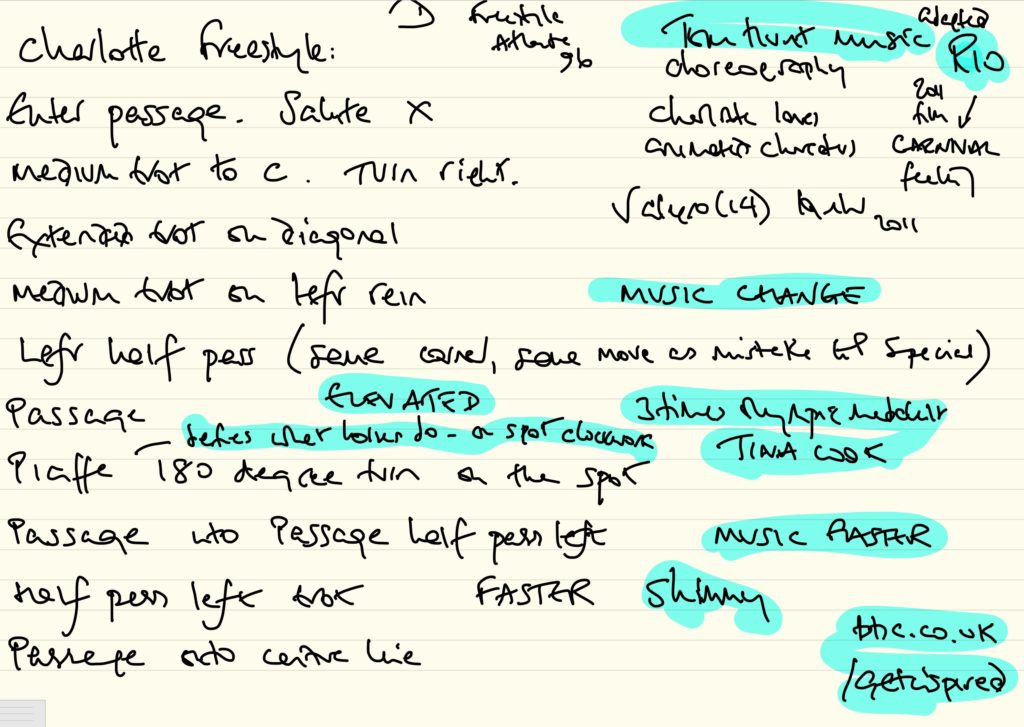 Charlotte Freestyle:
D Freestyle
Atlanta
96
Tom Hunt music
choreography
adapted
RIO
2011
film
CARNIVAL
feeling
Charlotte loves
animation characters
Valegro (14)
2011
Enter passage. Salute X
Medium trot to C. Turn right.
Extended trot on diagonal
Medium trot on left rein
MUSIC CHANGE
Left half pass (same corner, same move as mistake GP Special)
Passage
ELEVATED
3 times Olympic medallist
TINA COOK
defies what horses do - on spot clockwork
Piaffe 180 degree turn on the spot
Passage into Passage half pass left
MUSIC FASTER
Half pass left trot FASTER Shimmy
Passage onto centre line
bbc.co.uk
/getinspired